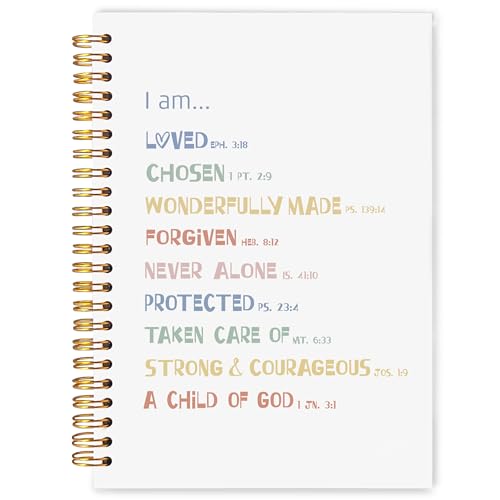 I am...
LOVED EPH. 3:18
CHOSEN 1 PT. 2:9
WONDERFULLY MADE PS. 139:14
FORGiVEN HEB. 8:12
NEVER ALONE IS. 41:10
PROTECTED PS. 23:4
TAKEN CARE OF MT. 6:33
STRONG & COURAGEOUS JOS. 1:9
A CHiLD OF GOD 1 JN. 3:1